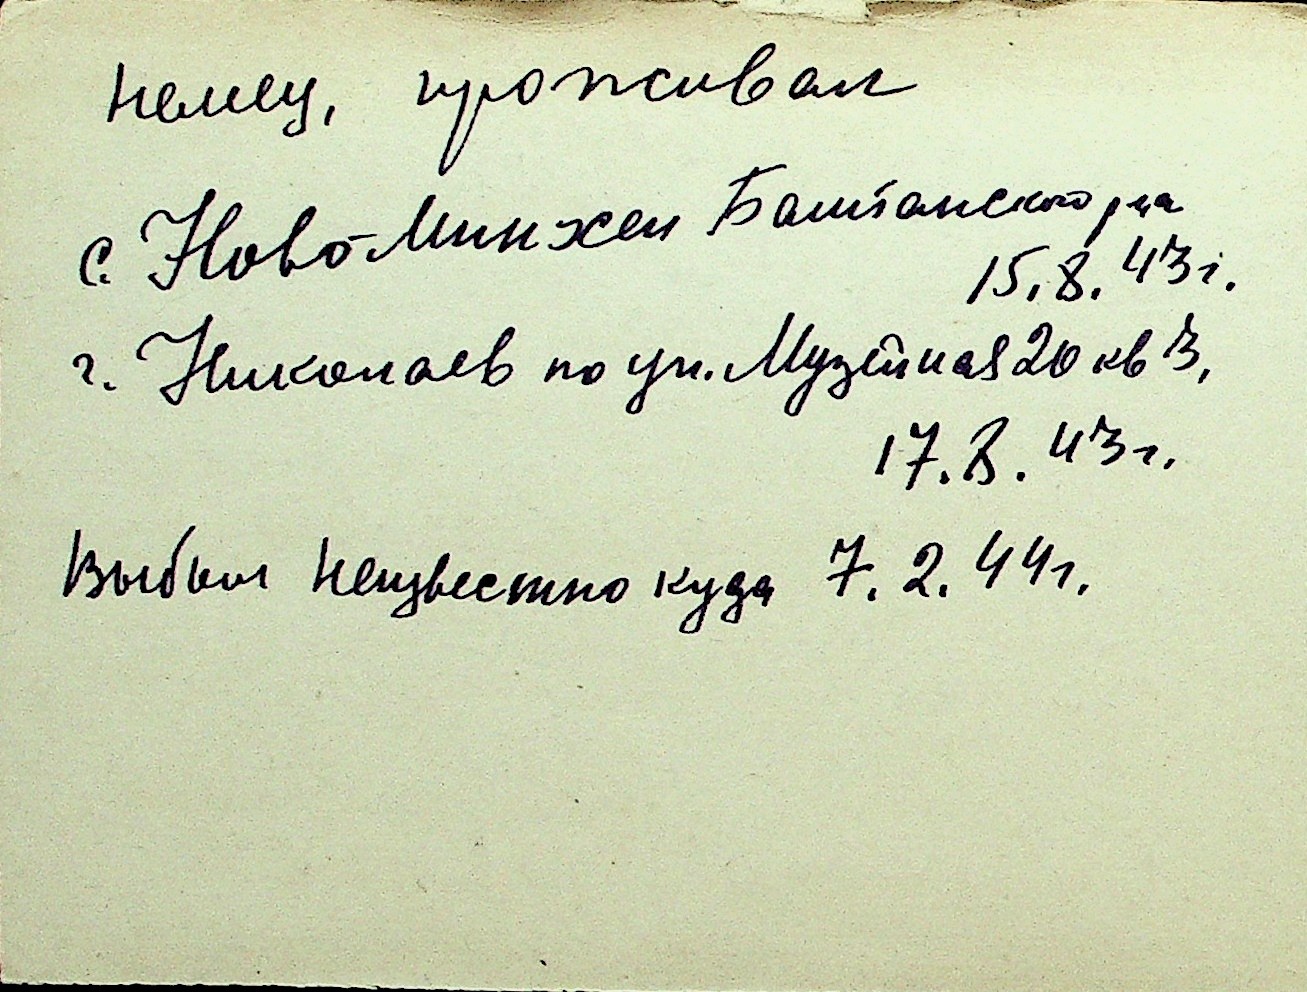 немец, проживал
с. Ново-Минхен Баштанского р-на
15.8.43г.
г. Николаев по ул. Музейная 20 кв 3,
17.8.43г.
Выбыл неизвестно куда 7.2.44г.